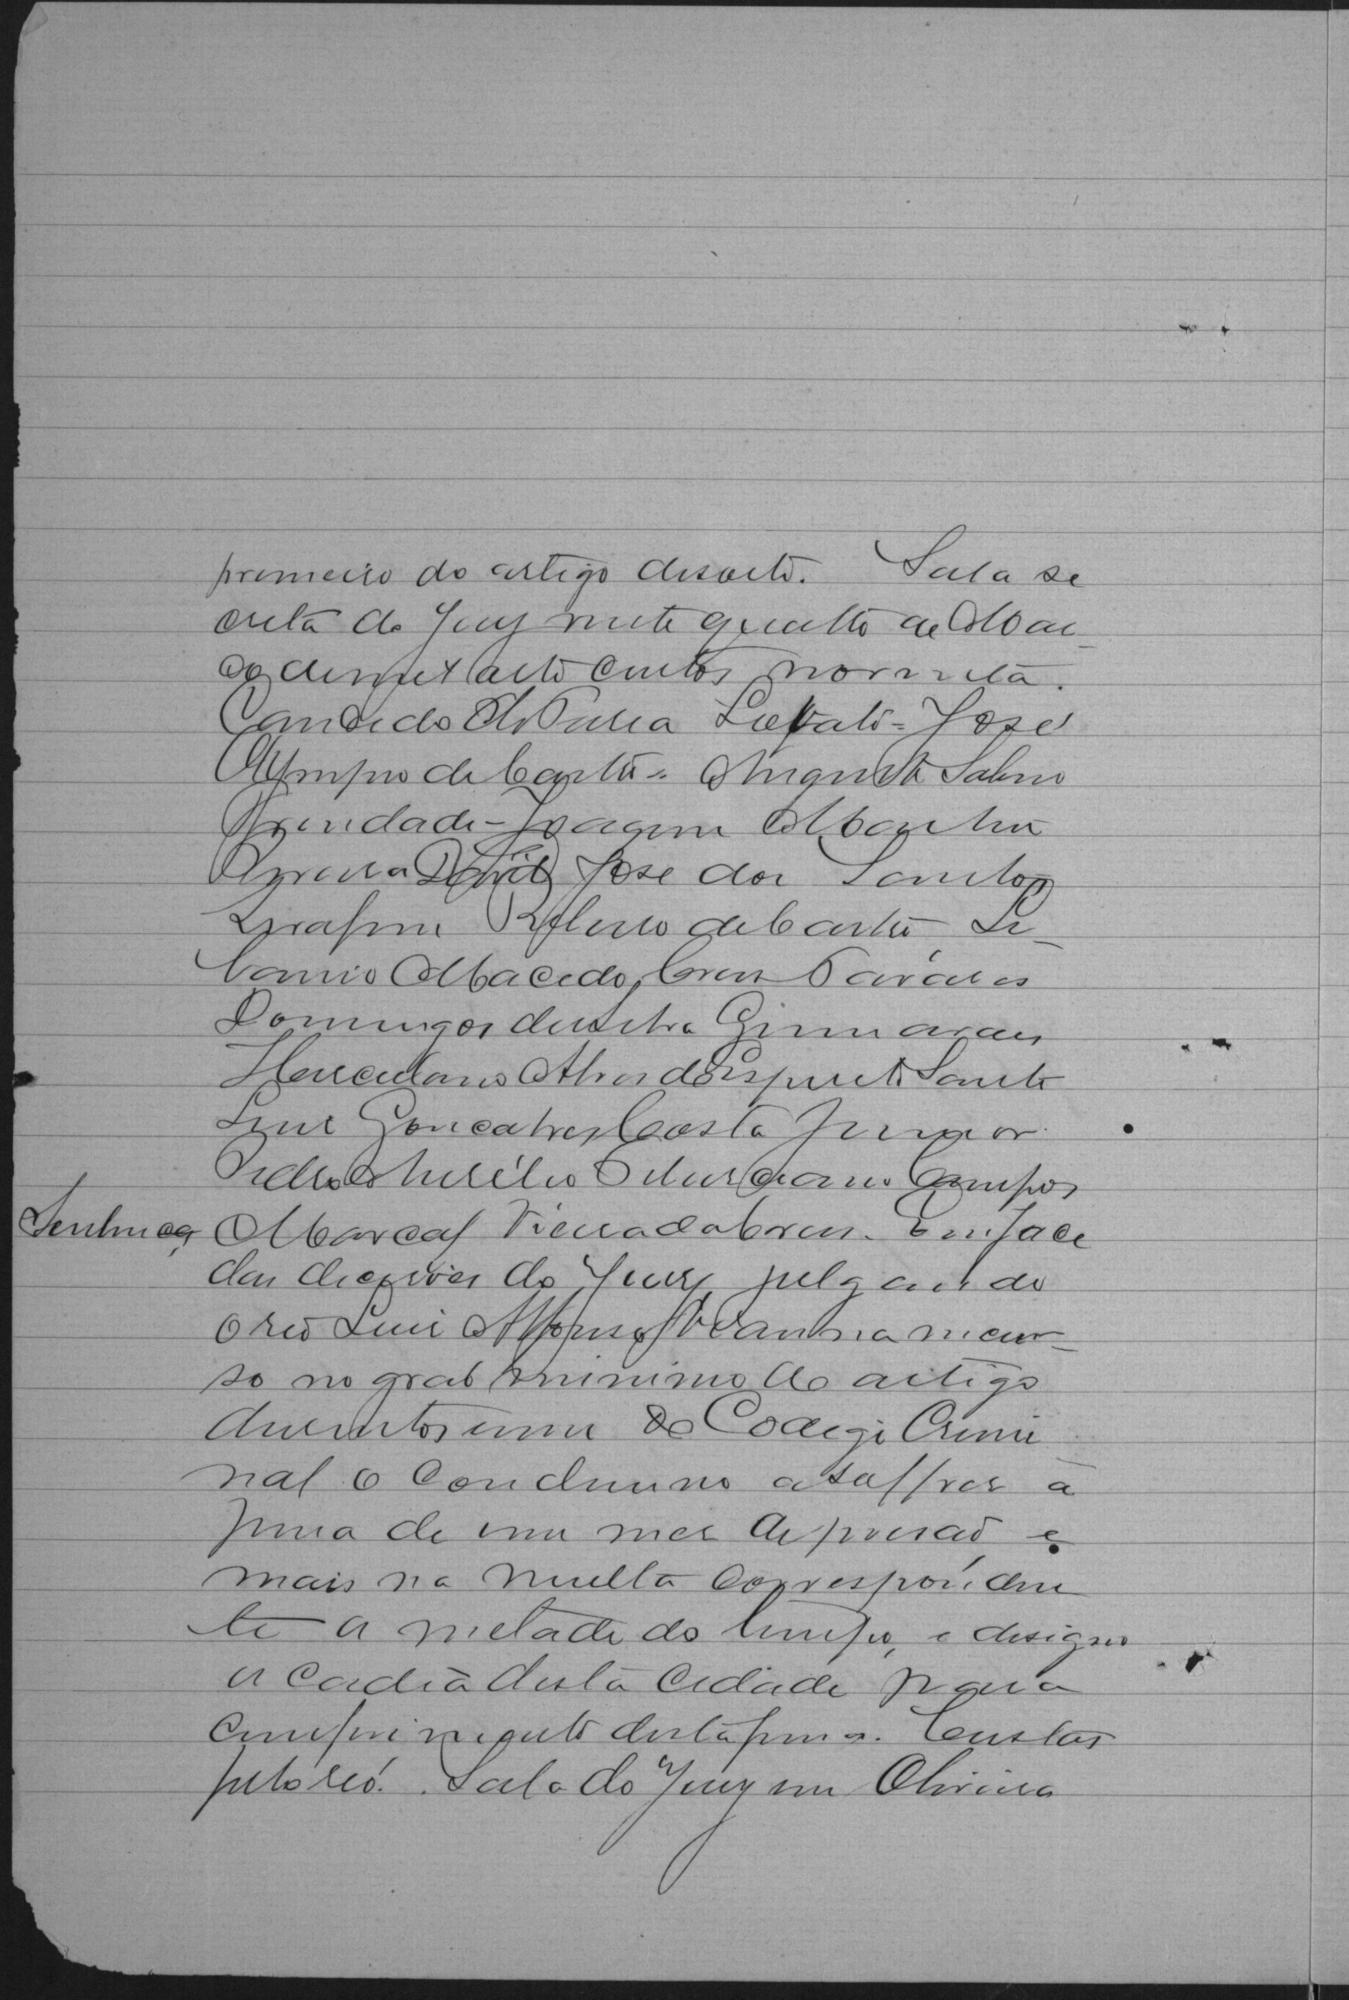 primeiro do artigo desoito. Sala se
creta do Jury vinte quatro de Mar_
ço de mil oito centos noventa.
Candido de Faria Lobato = José
Olympio de Castro = Augusto Salino
Trindade - Joaquim Martins
Ferreira David José dos Santos
Serafim Ribeiro de Castro, Li_
banio Macedo, Cruz Tavares
Domingos da Silva Guimarães
Herculano Alves do Espirito Santo
Luis Gonçalves Costa Junior
Pedro Aurélio Marciano Campos
Sentença Marçal Vieira d'Abreu. Em face
das decisões do Jury, julgando
o réo Luis Affonso Vianna incur_
so no grao minimo do artigo
duzentos e um do Codigo Crimi
nal o condemno a soffrer à
pena de um mes de prisaõ e
mais na multa correspónden
te a metade do tempo, e designo
a cadeia desta cidade para
cumprimento desta pena. Custas
pelo réo. Sala do Jury em Oliveira